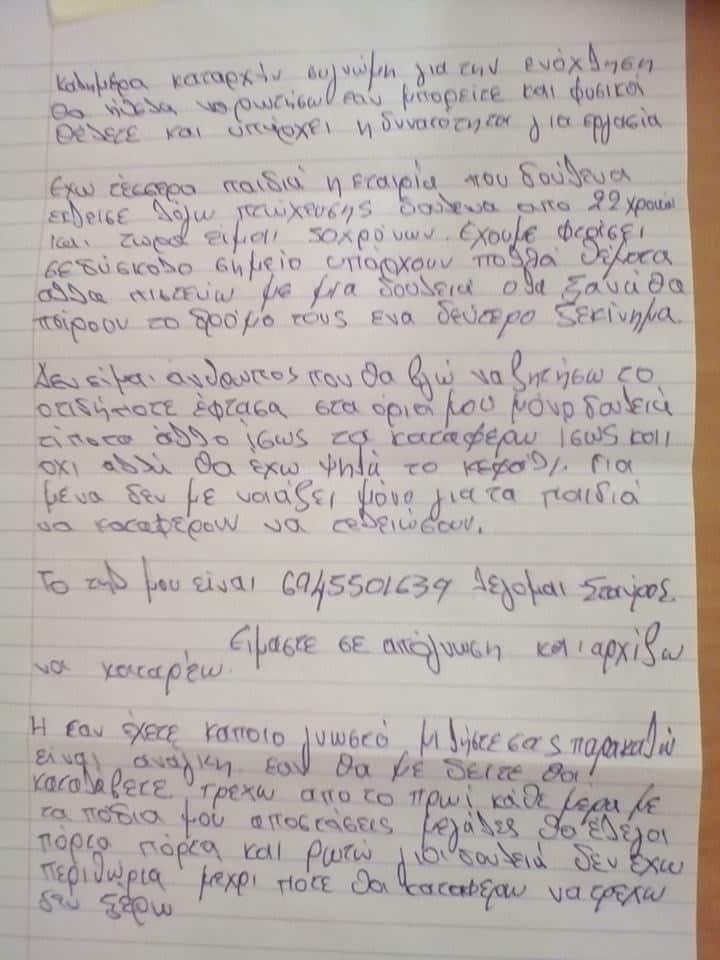 καλημερα καταρχήν συγνώμη για την ενόχληση
θα ήθελα να ρωτήσω εαν μπορειτε και φυσικά
θέλετε και υπάρχει η δυνατότητα για εργασία
Εχω τέσσερα παιδιά η εταιρία που δούλευα
εκλεισε λόγω πτώχευσης δουλευα απο 22 χρονών
και τωρα είμαι 50χρόνων. Εχουμε φτάσει
σε δύσκολο σημείο υπάρχουν πολλά θέματα
αλλα πιστεύω με μια δουλεια ολα ξανά θα
πάρουν το δρόμο τους ενα δεύτερο ξεκίνημα.
Δεν είμαι άνθρωπος που θα βγώ να ζητήσω το
οτιδήποτε έφτασα στα όρια μου μόνο δουλειά
τίποτα άλλο ίσως τα καταφέρω ίσως και
όχι αλλά θα έχω ψηλά το κεφάλι. Για
μένα δεν με νοιάζει μόνο για τα παιδιά
να καταφέρουν να τελειώσουν.
Το τηλ μου είναι 6945501639 λέγομαι Σταύρος.
Ειμαστε σε απόγνωση και αρχίζω
να καταρέω.
Η εαν έχετε καποιο γνωστό μιλήστε σας παρακαλώ
είναι ανάγκη εαν θα με δείτε θα
καταλάβετε τρέχω απο το πρωί κάθε μέρα με
τα πόδια μου αποστάσεις μεγάλες
πόρτα πόρτα και ρωτώ για δουλειά δεν έχω
περιθώρια μεχρι ποτε θα καταφέρω να τρεχω
δεν ξέρω